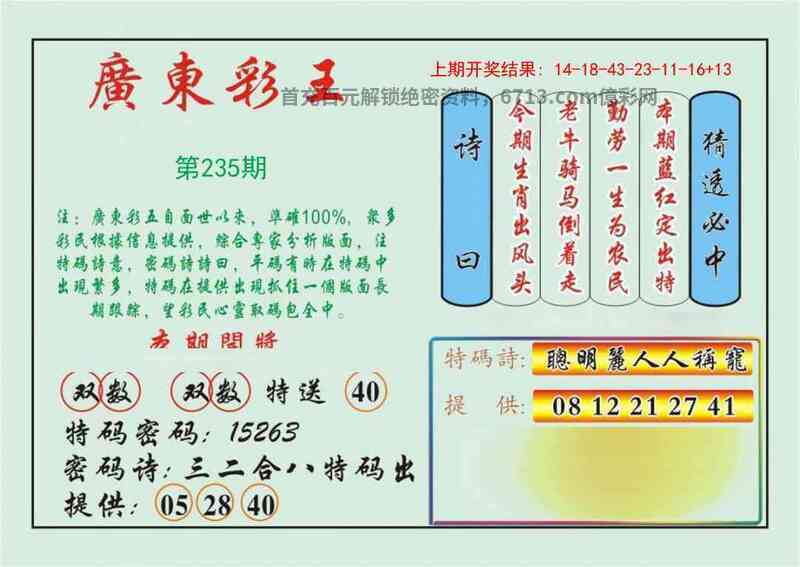 廣東彩王
上期开奖结果：14-18-43-23-11-16+13
首充百元解锁绝密资料，6713.com億彩网
第235期
注：廣東彩五自面世以來，準確100%，眾多
彩民根據信息提供，綜合專家分析版面，注
特碼詩意，密碼詩詩曰，平碼有時在特碼中
出現繁多，特碼在提供出現抓住一個版面長
期跟踪，望彩民心靈取碼包全中。
本期開將
双数 双数 特送 40
特码密码：15263
密码诗：三二合八特码出
提供：05 28 40
诗曰
今期生肖出风头
老牛骑马倒着走
勤劳一生为农民
本期蓝红定出特
猜透必中
特碼詩：聰明麗人人稱寵
提 供：08 12 21 27 41